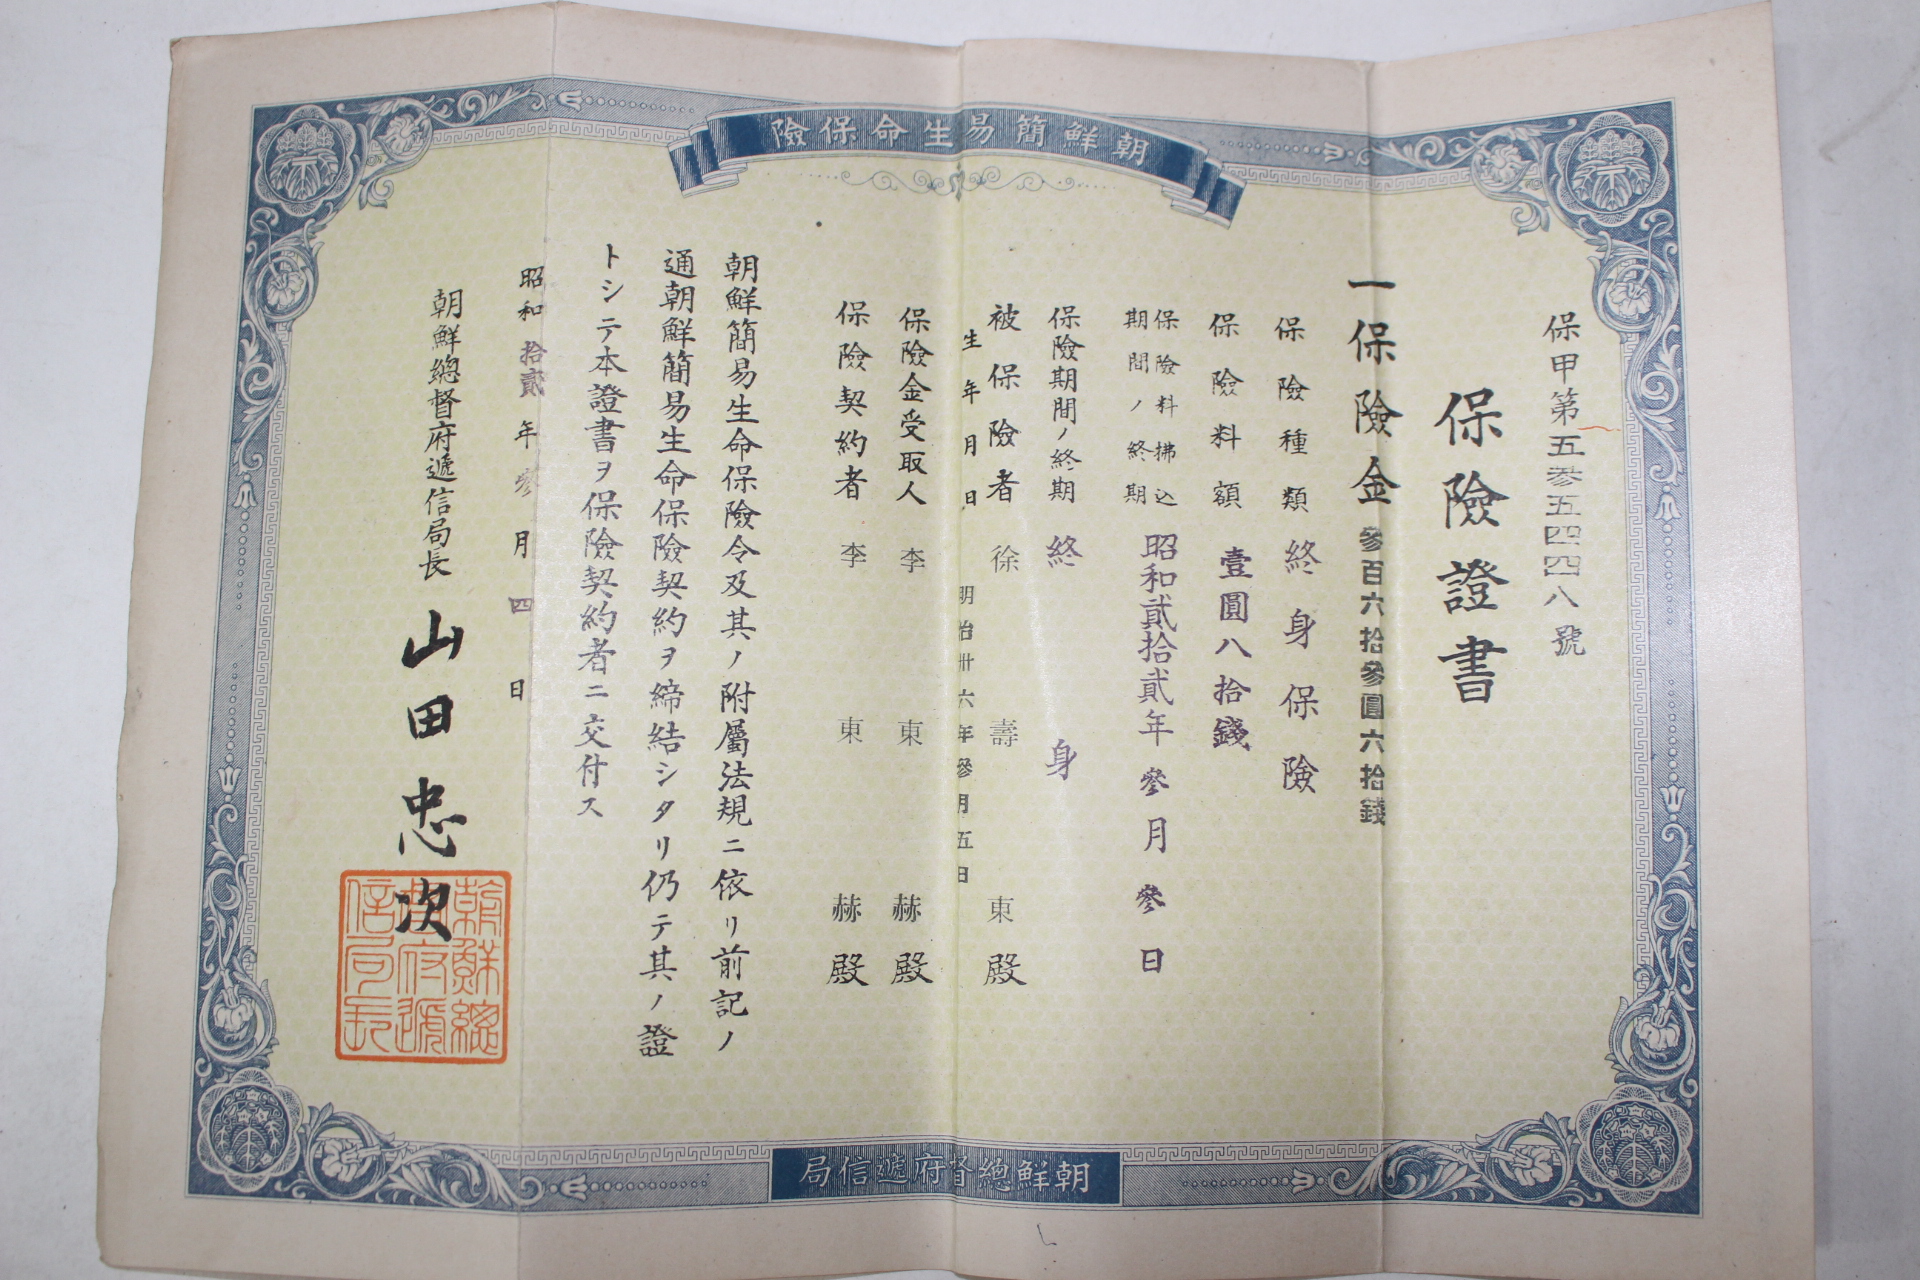 朝鮮簡易生命保險
保甲第五參五四四八號
保險證書
一保險金參百六拾參圓六拾錢
保險種類終身保險
保險料額壹圓八拾錢
保險料拂込
期間ノ終期昭和貳拾貳年參月參日
保險期間ノ終期終身
被保險者徐壽東殿
生年月日明治卅六年參月五日
保險金受取人李東赫殿
保險契約者李東赫殿
朝鮮簡易生命保險令及其ノ附屬法規ニ依リ前記ノ
通朝鮮簡易生命保險契約ヲ締結シタリ仍テ其ノ證
トシテ本證書ヲ保險契約者ニ交付ス
昭和拾貳年參月四日
朝鮮總督府遞信局長山田忠次
朝鮮總督府遞信局長
朝鮮總督府遞信局